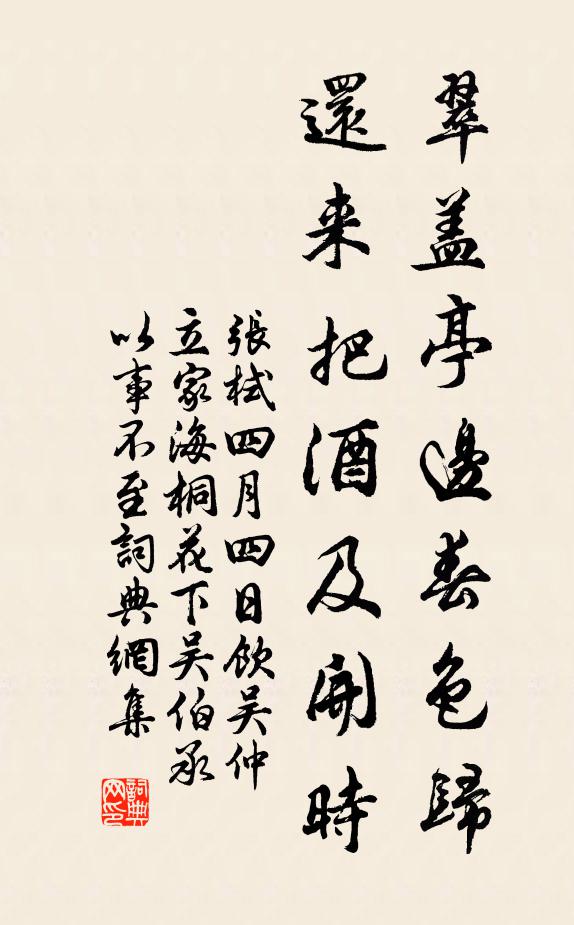 翠盖亭邊春色歸
還来把酒及開時
張栻四月四日飲吴仲
立家海桐花下吴伯承
以事不至詞典網集
詞典网印